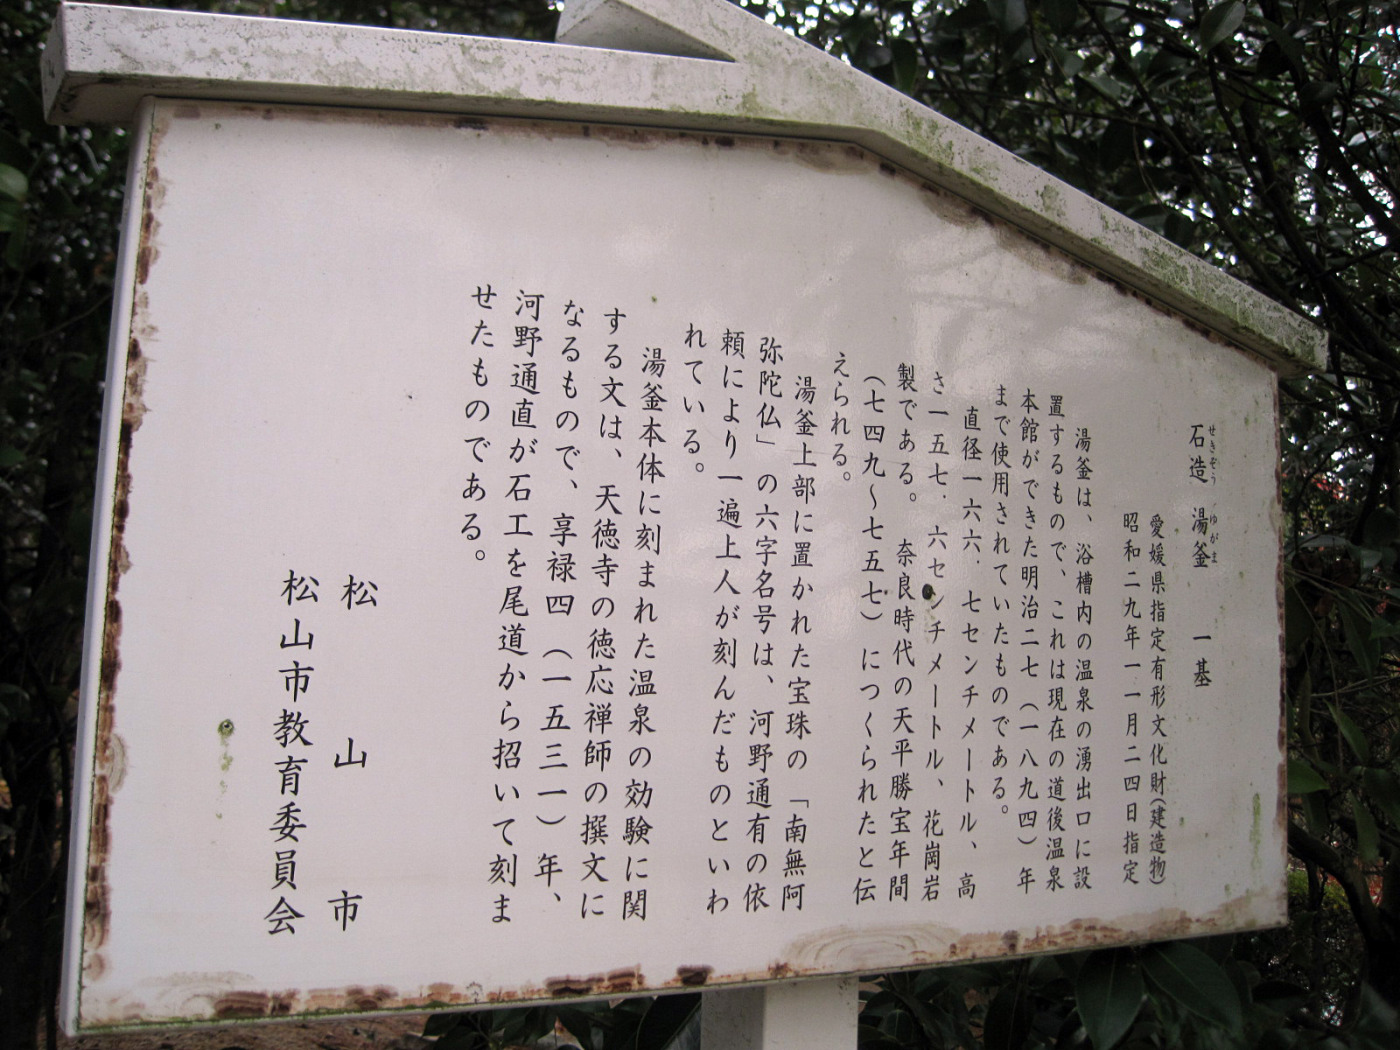 せきぞう ゆがま
石造 湯釜 一基
愛媛県指定有形文化財(建造物)
昭和二九年一一月二四日指定
湯釜は、浴槽内の温泉の湧出口に設
置するもので、これは現在の道後温泉
本館ができた明治二七(一八九四)年
まで使用されていたものである。
直径一六六.七センチメートル、高
さ一五七.六センチメートル、花崗岩
製である。奈良時代の天平勝宝年間
(七四九～七五七)につくられたと伝
えられる。
湯釜上部に置かれた宝珠の「南無阿
弥陀仏」の六字名号は、河野通有の依
頼により一遍上人が刻んだものといわ
れている。
湯釜本体に刻まれた温泉の効験に関
する文は、天徳寺の徳応禅師の撰文に
なるもので、享禄四(一五三一)年、
河野通直が石工を尾道から招いて刻ま
せたものである。
松山市
松山市教育委員会